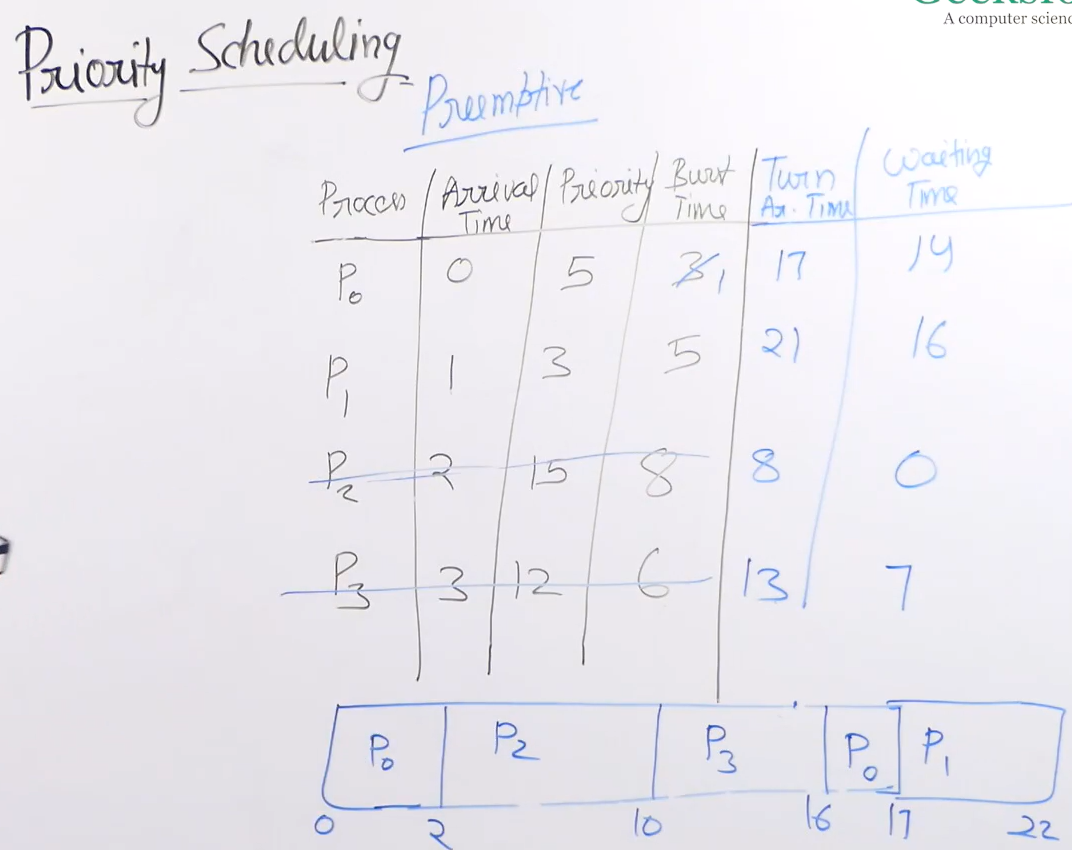 A computer scienc
Priority Scheduling
Preemptive
Process Arrival Time Priority Burst Time Turn Ar. Time Waiting Time
P0 0 5 3 1 17 14
P1 1 3 5 21 16
P2 2 15 8 8 0
P3 3 12 6 13 7
P0 P2 P3 P0 P1
0 2 10 16 17 22